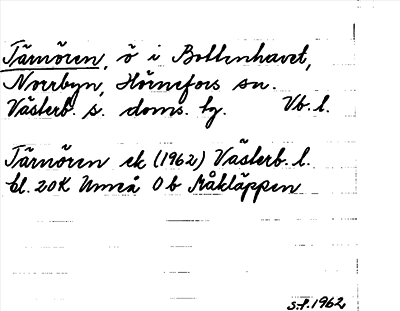 Tärnören, ö i Bottenhavet,
Norrbyn, Hörnefors sn.
Västerb. s. doms. hg. Vb. l.
Tärnören ek (1962) Västerb. l.
bl. 20K Umeå Ob Måkläppen
s.å. 1962